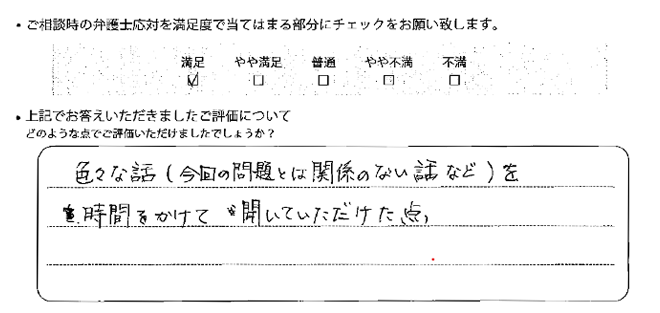 ・ご相談時の弁護士応対を満足度で当てはまる部分にチェックをお願い致します。
満足 やや満足 普通 やや不満 不満
☑ □ □ □ □
・上記でお答えいただきましたご評価について
どのような点でご評価いただけましたでしょうか？
色々な話（今回の問題とは関係のない話など）を
時間をかけて聞いていただけた点。